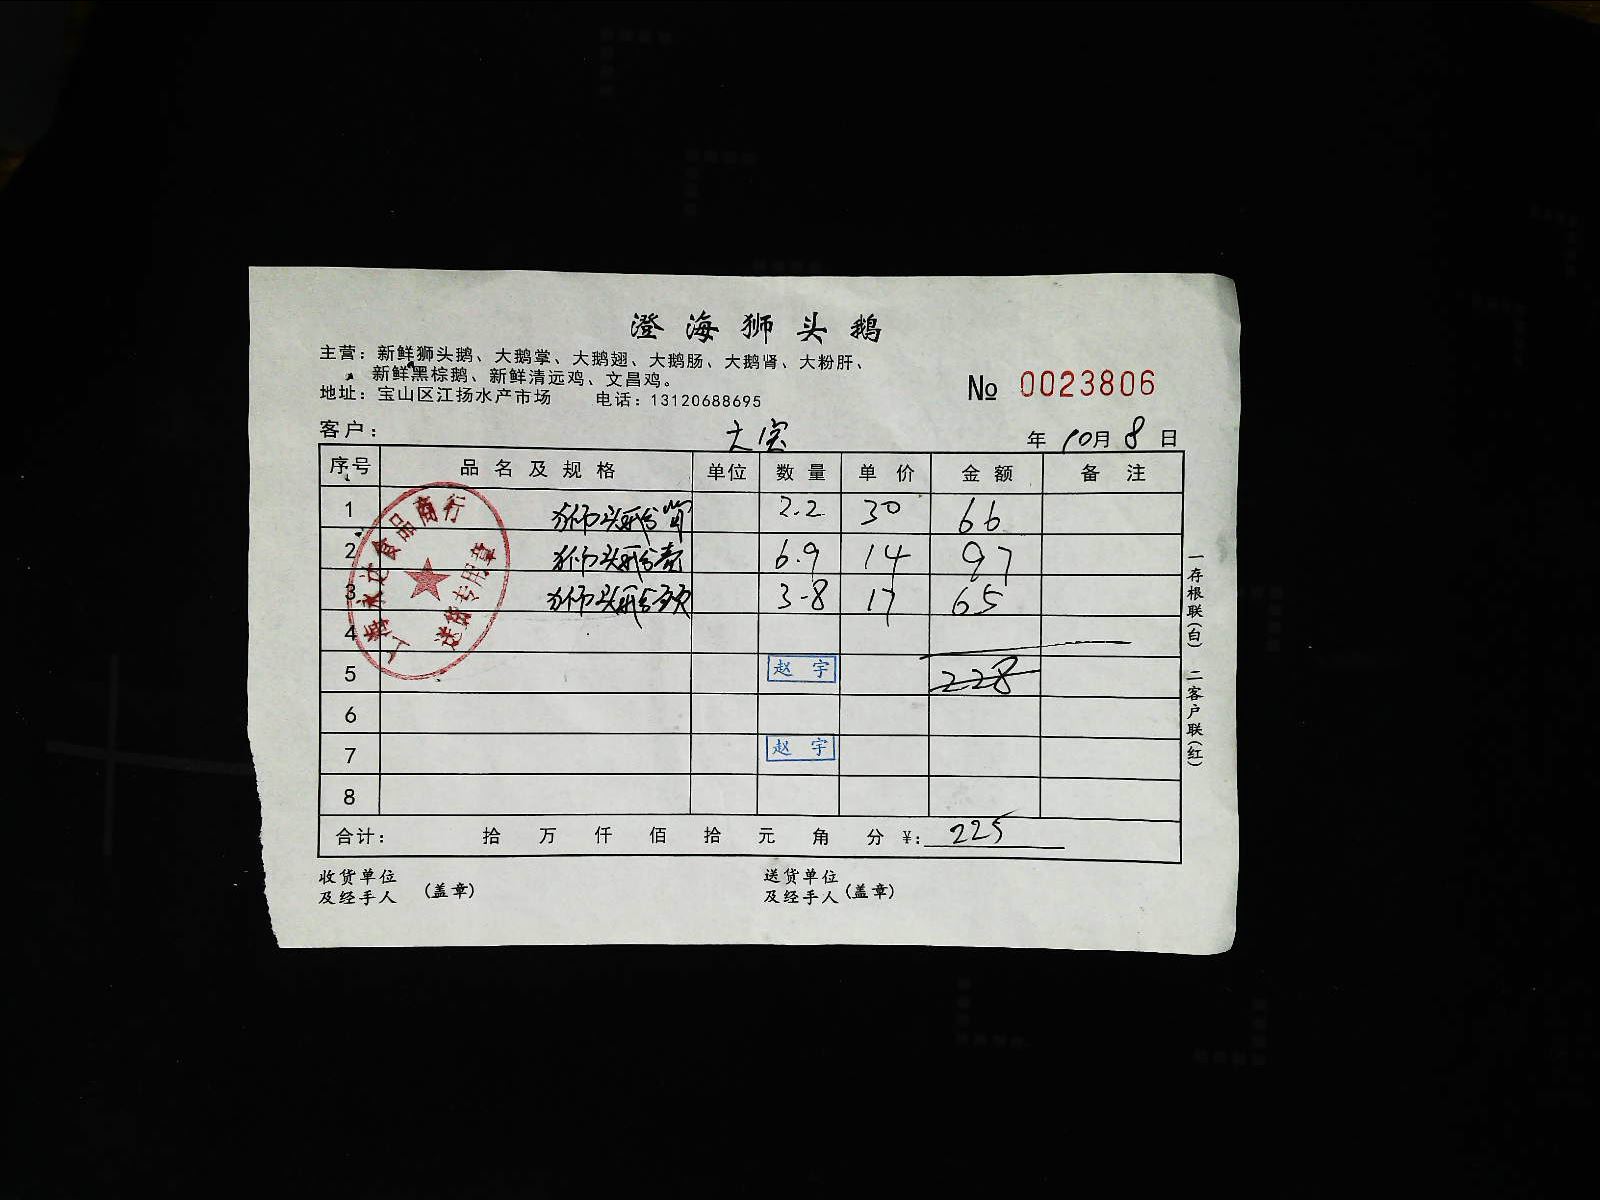 澄海狮头鹅
主营：新鲜狮头鹅、大鹅掌、大鹅翅、大鹅肠、大鹅肾、大粉肝、
新鲜黑棕鹅、新鲜清远鸡、文昌鸡。
地址：宝山区江扬水产市场 电话：13120688695
№ 0023806
客户： 大宝 年 10月 8 日
序号 品名及规格 单位 数量 单价 金额 备注
1 狮头鹅 2.2 30 66
2 狮头鹅 6.9 14 97
3 狮头鹅 3.8 17 65
4
5 赵宇 228
6
7 赵宇
8
合计： 拾 万 仟 佰 拾 元 角 分 ¥: 225
收货单位
及经手人 (盖章)
送货单位
及经手人 (盖章)
一存根联(白) 二客户联(红)
食品商行
送货专用章